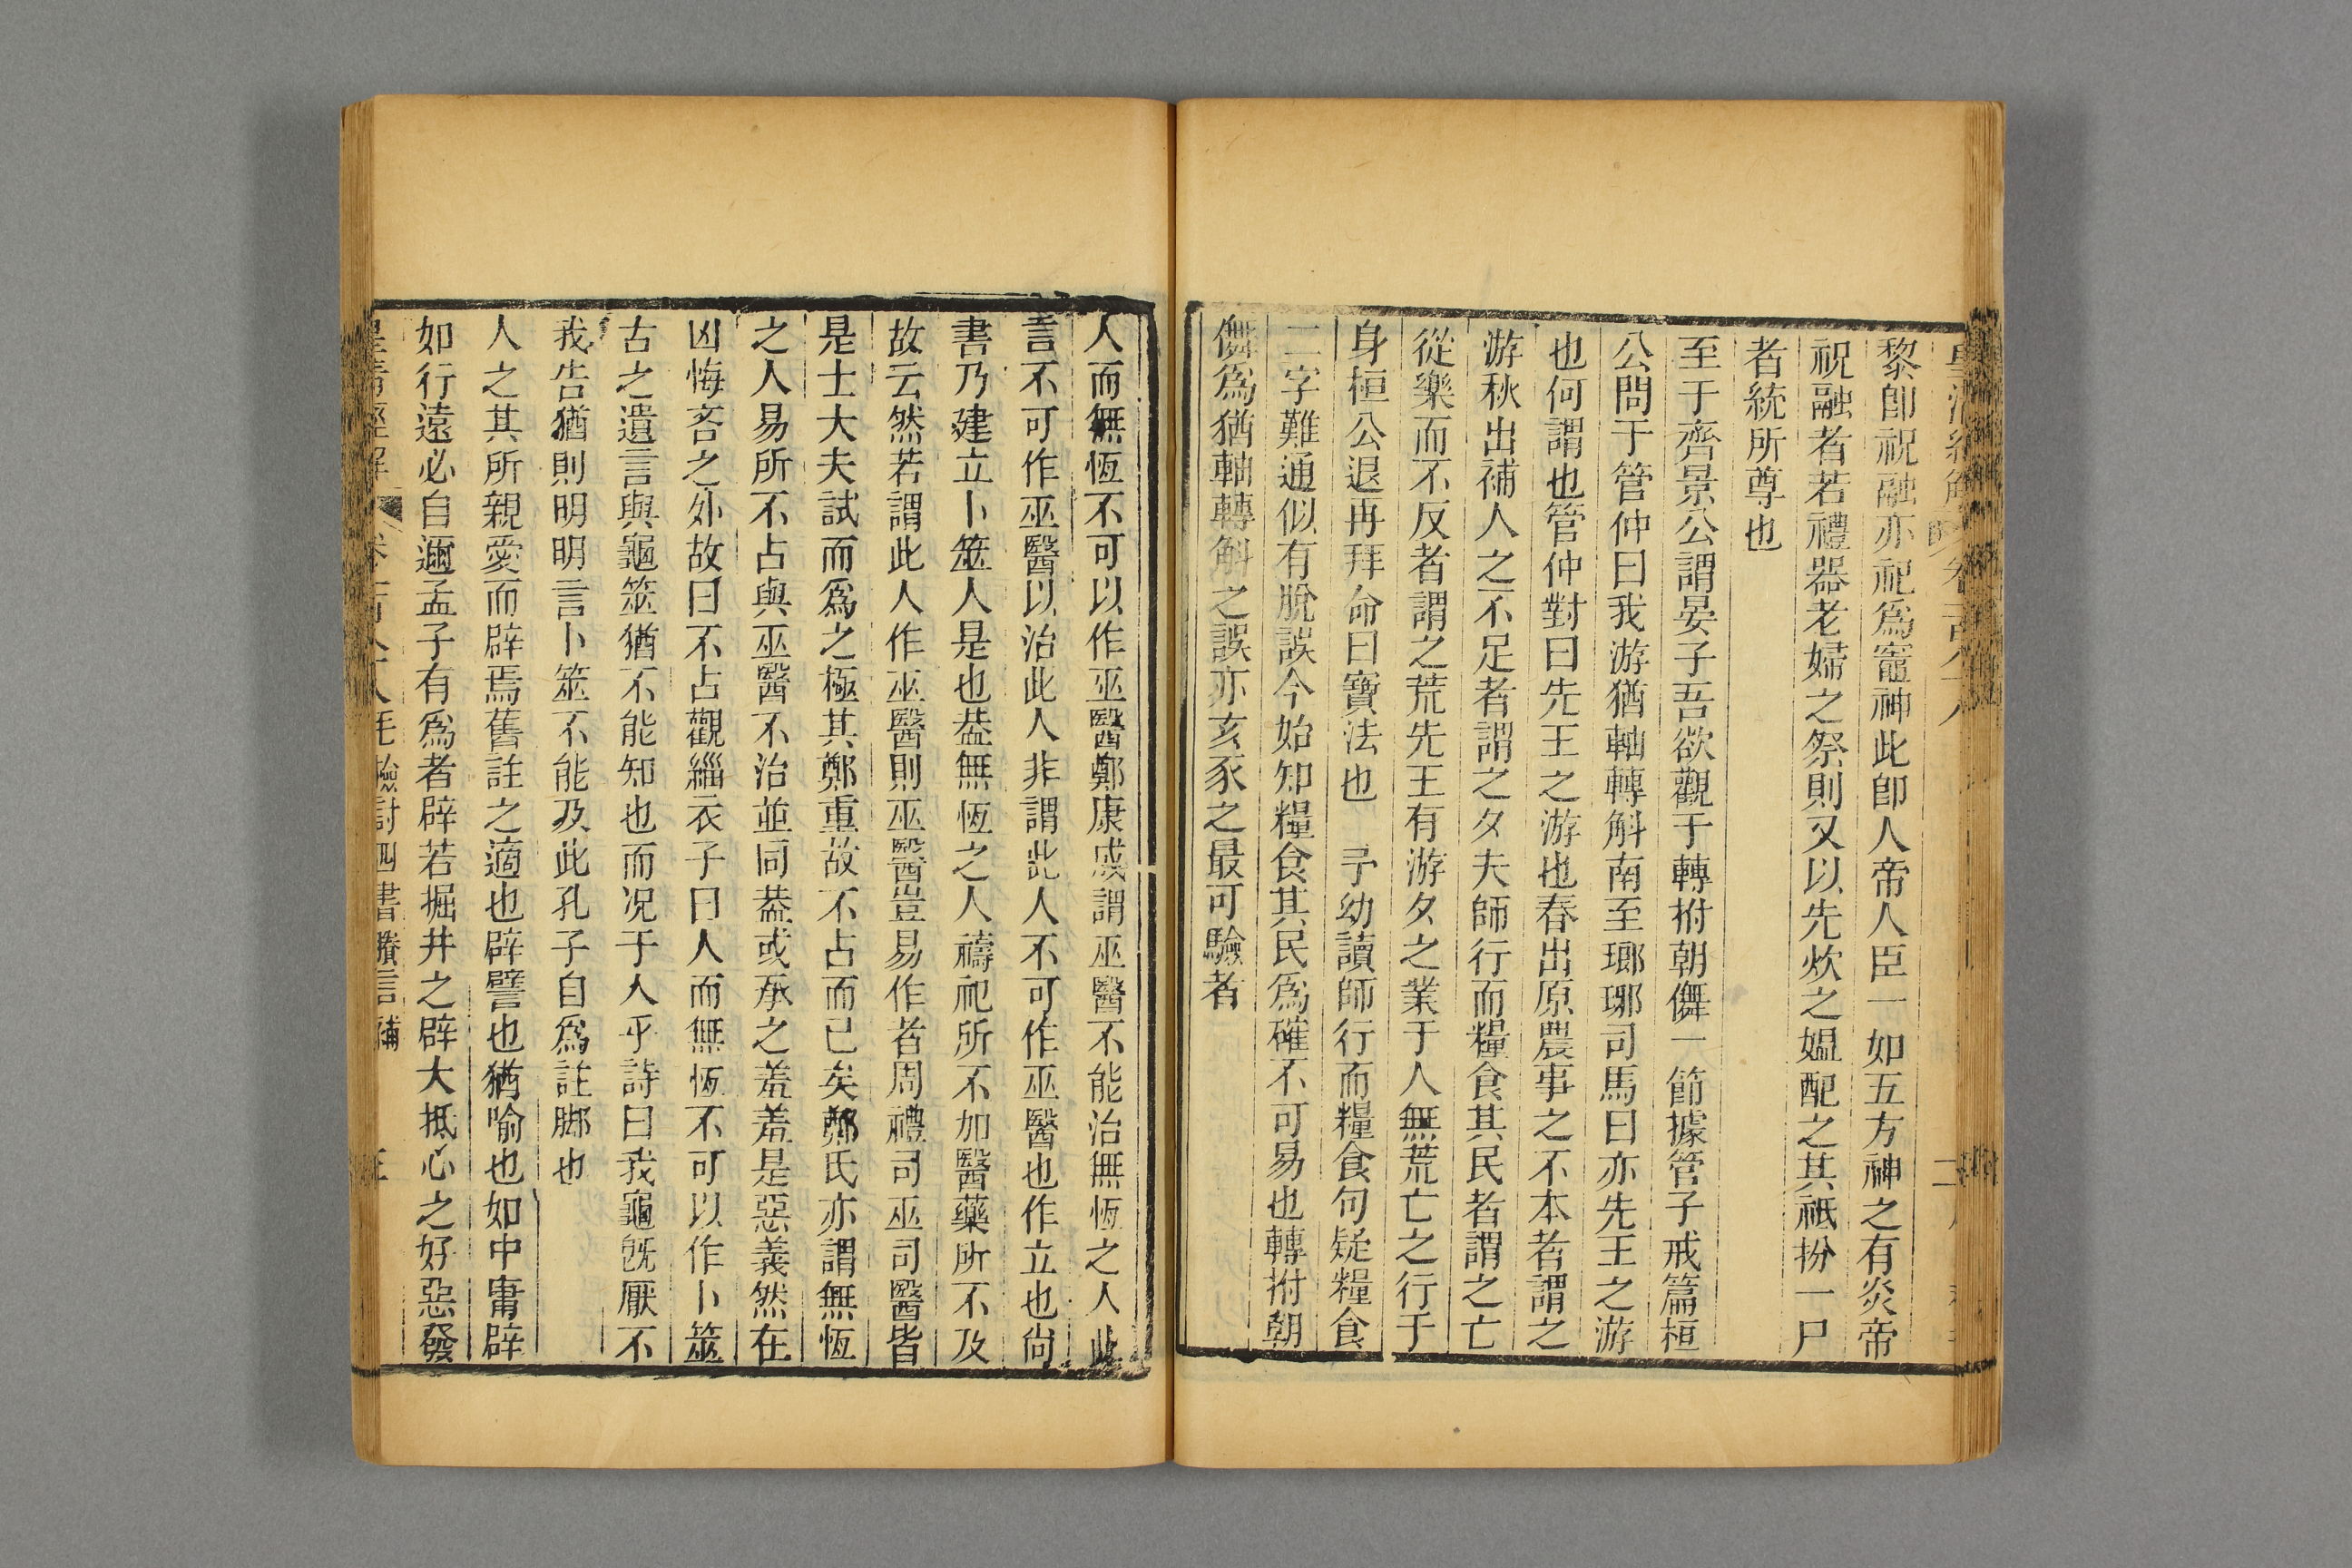 黎卽祝融亦祀爲竈神此卽人帝人臣一如五方神之有炎帝
祝融者若禮器老婦之祭則又以先炊之媼配之其祇扮一尸
者統所尊也
至于齊景公謂晏子吾欲觀于轉拊朝儛一節據管子戒篇桓
公問于管仲曰我游猶軸轉斛南至瑯琊司馬曰亦先王之游
也何謂也管仲對曰先王之游也春出原農事之不本者謂之
游秋出補人之不足者謂之夕夫師行而糧食其民者謂之亡
從樂而不反者謂之荒先王有游夕之業于人無荒亡之行于
身桓公退再拜命曰寶法也 予幼讀師行而糧食句疑糧食
二字難通似有脫誤今始知糧食其民爲確不可易也轉拊朝
儛爲猶軸轉斛之誤亦亥豕之最可驗者
人而無恆不可以作巫醫鄭康成謂巫醫不能治無恆之人此
言不可作巫醫以治此人非謂此人不可作巫醫也作立也尙
書乃建立卜筮人是也葢無恆之人禱祀所不加醫藥所不及
故云然若謂此人作巫醫則巫醫豈易作者周禮司巫司醫皆
是士大夫試而爲之極其鄭重故不占而已矣鄭氏亦謂無恆
之人易所不占與巫醫不治並同葢或承之羞羞是惡義然在
凶悔吝之外故曰不占觀緇衣子曰人而無恆不可以作卜筮
古之遺言與龜筮猶不能知也而况于人乎詩曰我龜旣厭不
我告猶則明明言卜筮不能及此孔子自爲註脚也
人之其所親愛而辟焉舊註之適也辟譬也猶喻也如中庸辟
如行遠必自邇孟子有爲者辟若掘井之辟大抵心之好惡發